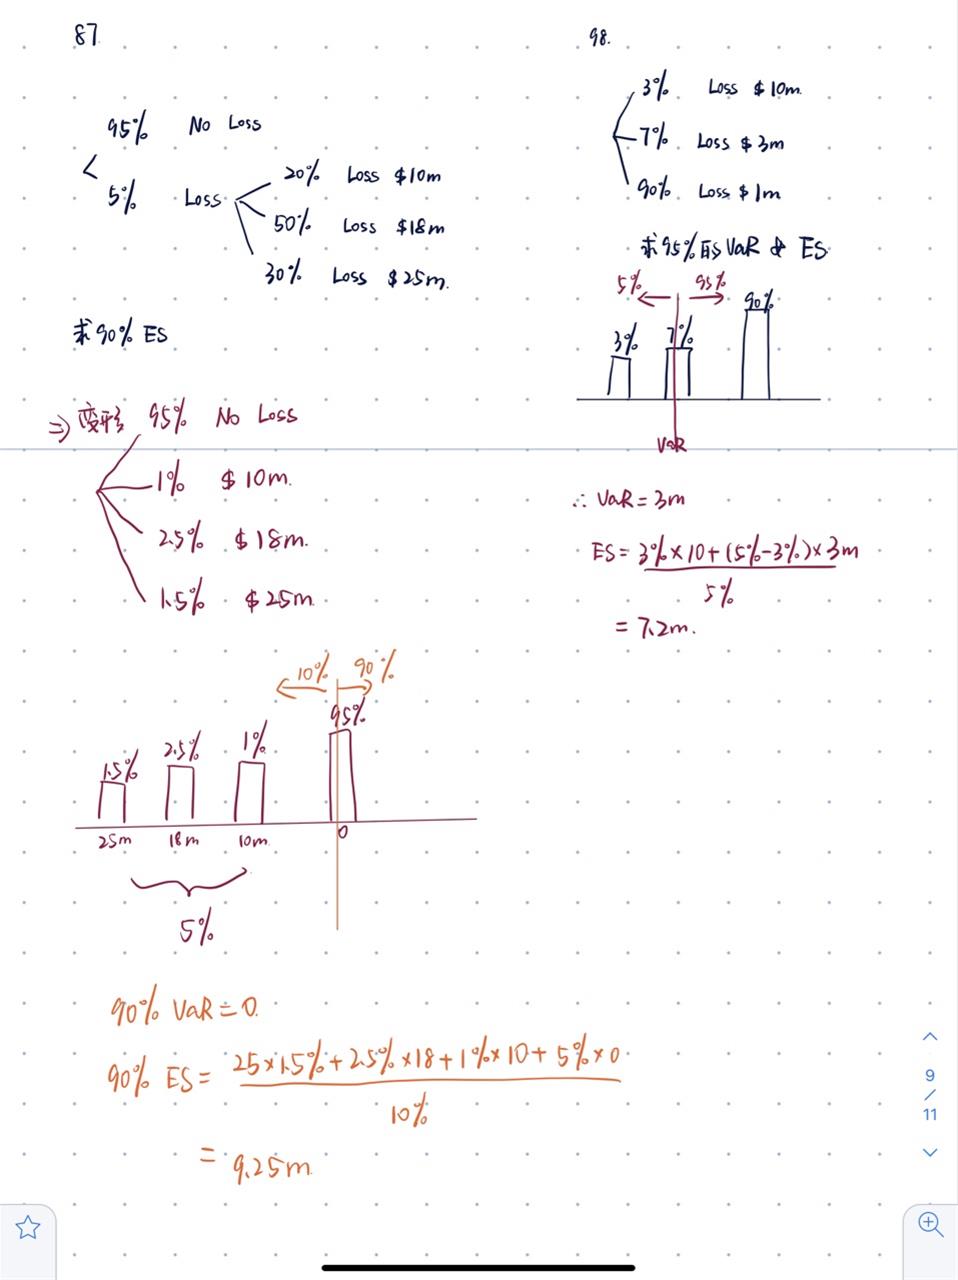 87.
95% No Loss
5% Loss
20% Loss $10m
50% Loss $18m
30% Loss $25m.
求90% ES
⇒变形 95% No Loss
1% $10m.
2.5% $18m.
1.5% $25m.
10% 90%
1.5% 2.5% 1% 95%
25m 18m 10m 0
5%
90% VaR = 0.
90% ES = 25×1.5% + 2.5%×18 + 1%×10 + 5%×0
10%
= 9.25m
98.
3% Loss $10m.
7% Loss $3m
90% Loss $1m
求95%的VaR & ES
5% 95%
3% 7% 90%
VaR
∴ VaR = 3m
ES = 3%×10 + (5%-3%)×3m
5%
= 7.2m.
9
/
11